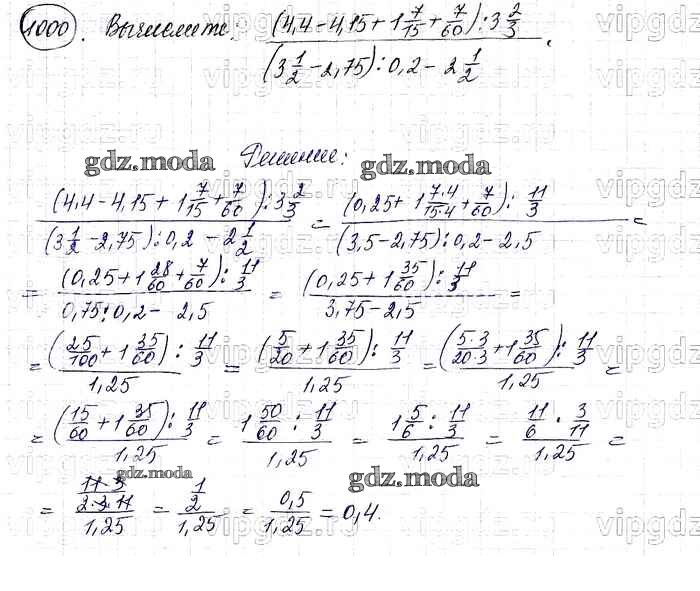 1000. Вычислите: ((4,4 - 4,15 + 1 7/15 + 7/60) : 3 2/3) / ((3 1/2 - 2,75) : 0,2 - 2 1/2).
Решение:
gdz.moda gdz.moda
((4,4 - 4,15 + 1 7/15 + 7/60) : 3 2/3) / ((3 1/2 - 2,75) : 0,2 - 2 1/2) = ((0,25 + 1 7·4/15·4 + 7/60) : 11/3) / ((3,5 - 2,75) : 0,2 - 2,5) =
= ((0,25 + 1 28/60 + 7/60) : 11/3) / (0,75 : 0,2 - 2,5) = ((0,25 + 1 35/60) : 11/3) / (3,75 - 2,5) =
= ((25/100 + 1 35/60) : 11/3) / 1,25 = ((5/20 + 1 35/60) : 11/3) / 1,25 = ((5·3/20·3 + 1 35/60) : 11/3) / 1,25 =
= ((15/60 + 1 35/60) : 11/3) / 1,25 = (1 50/60 : 11/3) / 1,25 = (1 5/6 : 11/3) / 1,25 = (11/6 · 3/11) / 1,25 =
gdz.moda gdz.moda
= (11·3/2·3·11) / 1,25 = (1/2) / 1,25 = 0,5/1,25 = 0,4.